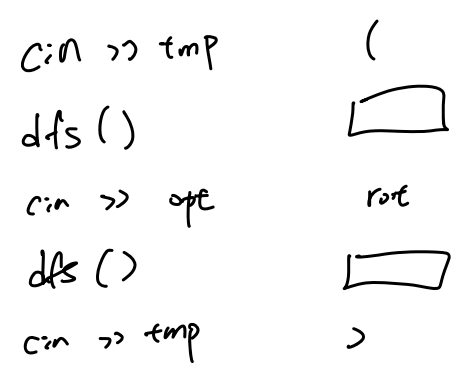 cin >> tmp (
dfs ()
cin >> opt root
dfs ()
cin >> tmp )